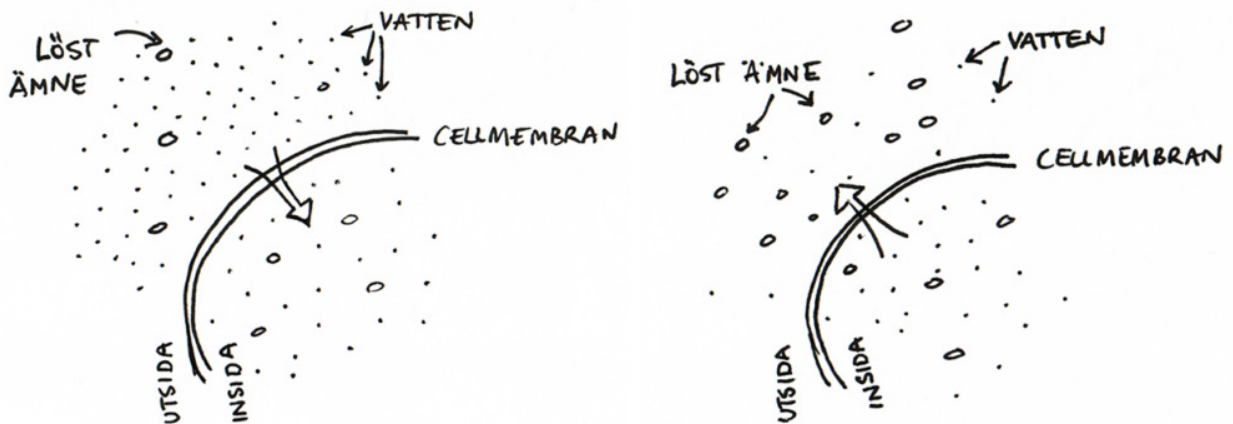 LÖST
ÄMNE
VATTEN
CELLMEMBRAN
UTSIDA
INSIDA
LÖST ÄMNE
VATTEN
CELLMEMBRAN
UTSIDA
INSIDA